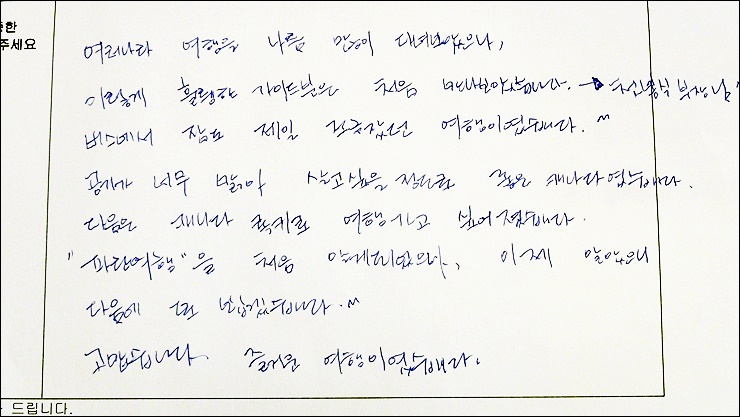 한
주세요
여러나라 여행을 나름 많이 다녀보았으나,
이렇게 훌륭한 가이드분은 처음 만나보았습니다. → 부장님"
버스에서 잠도 제일 조금잤던 여행이었습니다.^^
공기가 너무 맑아 살고싶을 정도로 좋은 캐나다였습니다.
다음은 캐나다 록키로 여행가고 싶어졌습니다.
"파란여행"을 처음 알게되었으나, 이제 알았으니
다음에 또 뵙겠습니다.^^
고맙습니다. 즐거운 여행이었습니다.
드립니다.